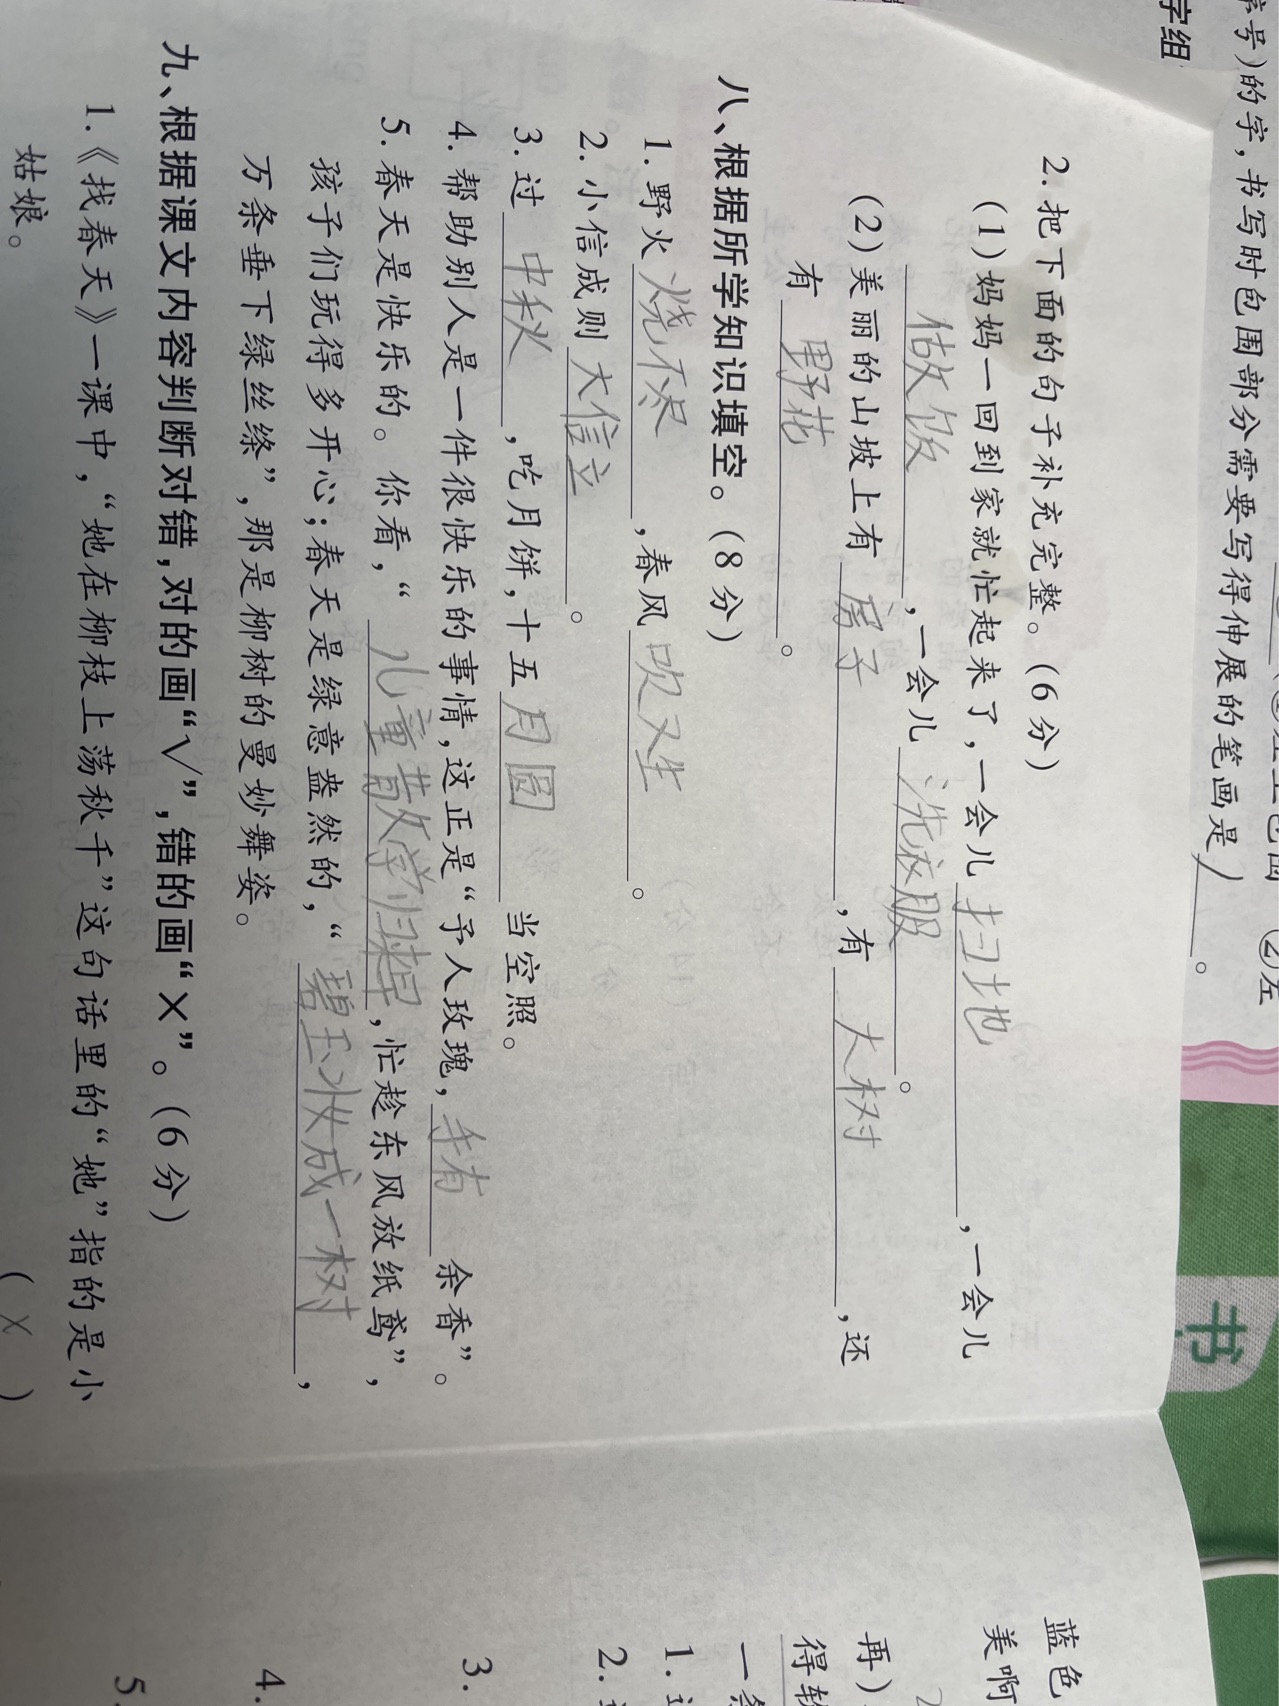 序号)的字,书写时包围部分需要写得伸展的笔画是丿。
字组
2.把下面的句子补充完整。(6分)
(1)妈妈一回到家就忙起来了,一会儿扫地,一会儿
做饭,一会儿洗衣服。
(2)美丽的山坡上有房子,有大树,还
有野花。
八、根据所学知识填空。(8分)
1.野火烧不尽,春风吹又生。
2.小信成则大信立。
3.过中秋,吃月饼,十五月圆当空照。
4.帮助别人是一件很快乐的事情,这正是“予人玫瑰,手有余香”。
5.春天是快乐的。你看,“儿童散学归来早,忙趁东风放纸鸢”,
孩子们玩得多开心;春天是绿意盎然的,“碧玉妆成一树,
万条垂下绿丝绦”,那是柳树的曼妙舞姿。
九、根据课文内容判断对错,对的画“√”,错的画“×”。(6分)
1.《找春天》一课中,“她在柳枝上荡秋千”这句话里的“她”指的是小
姑娘。 (X)
书
蓝色
美啊
再)
得软
一条
1.
2.
3.
4.
5.